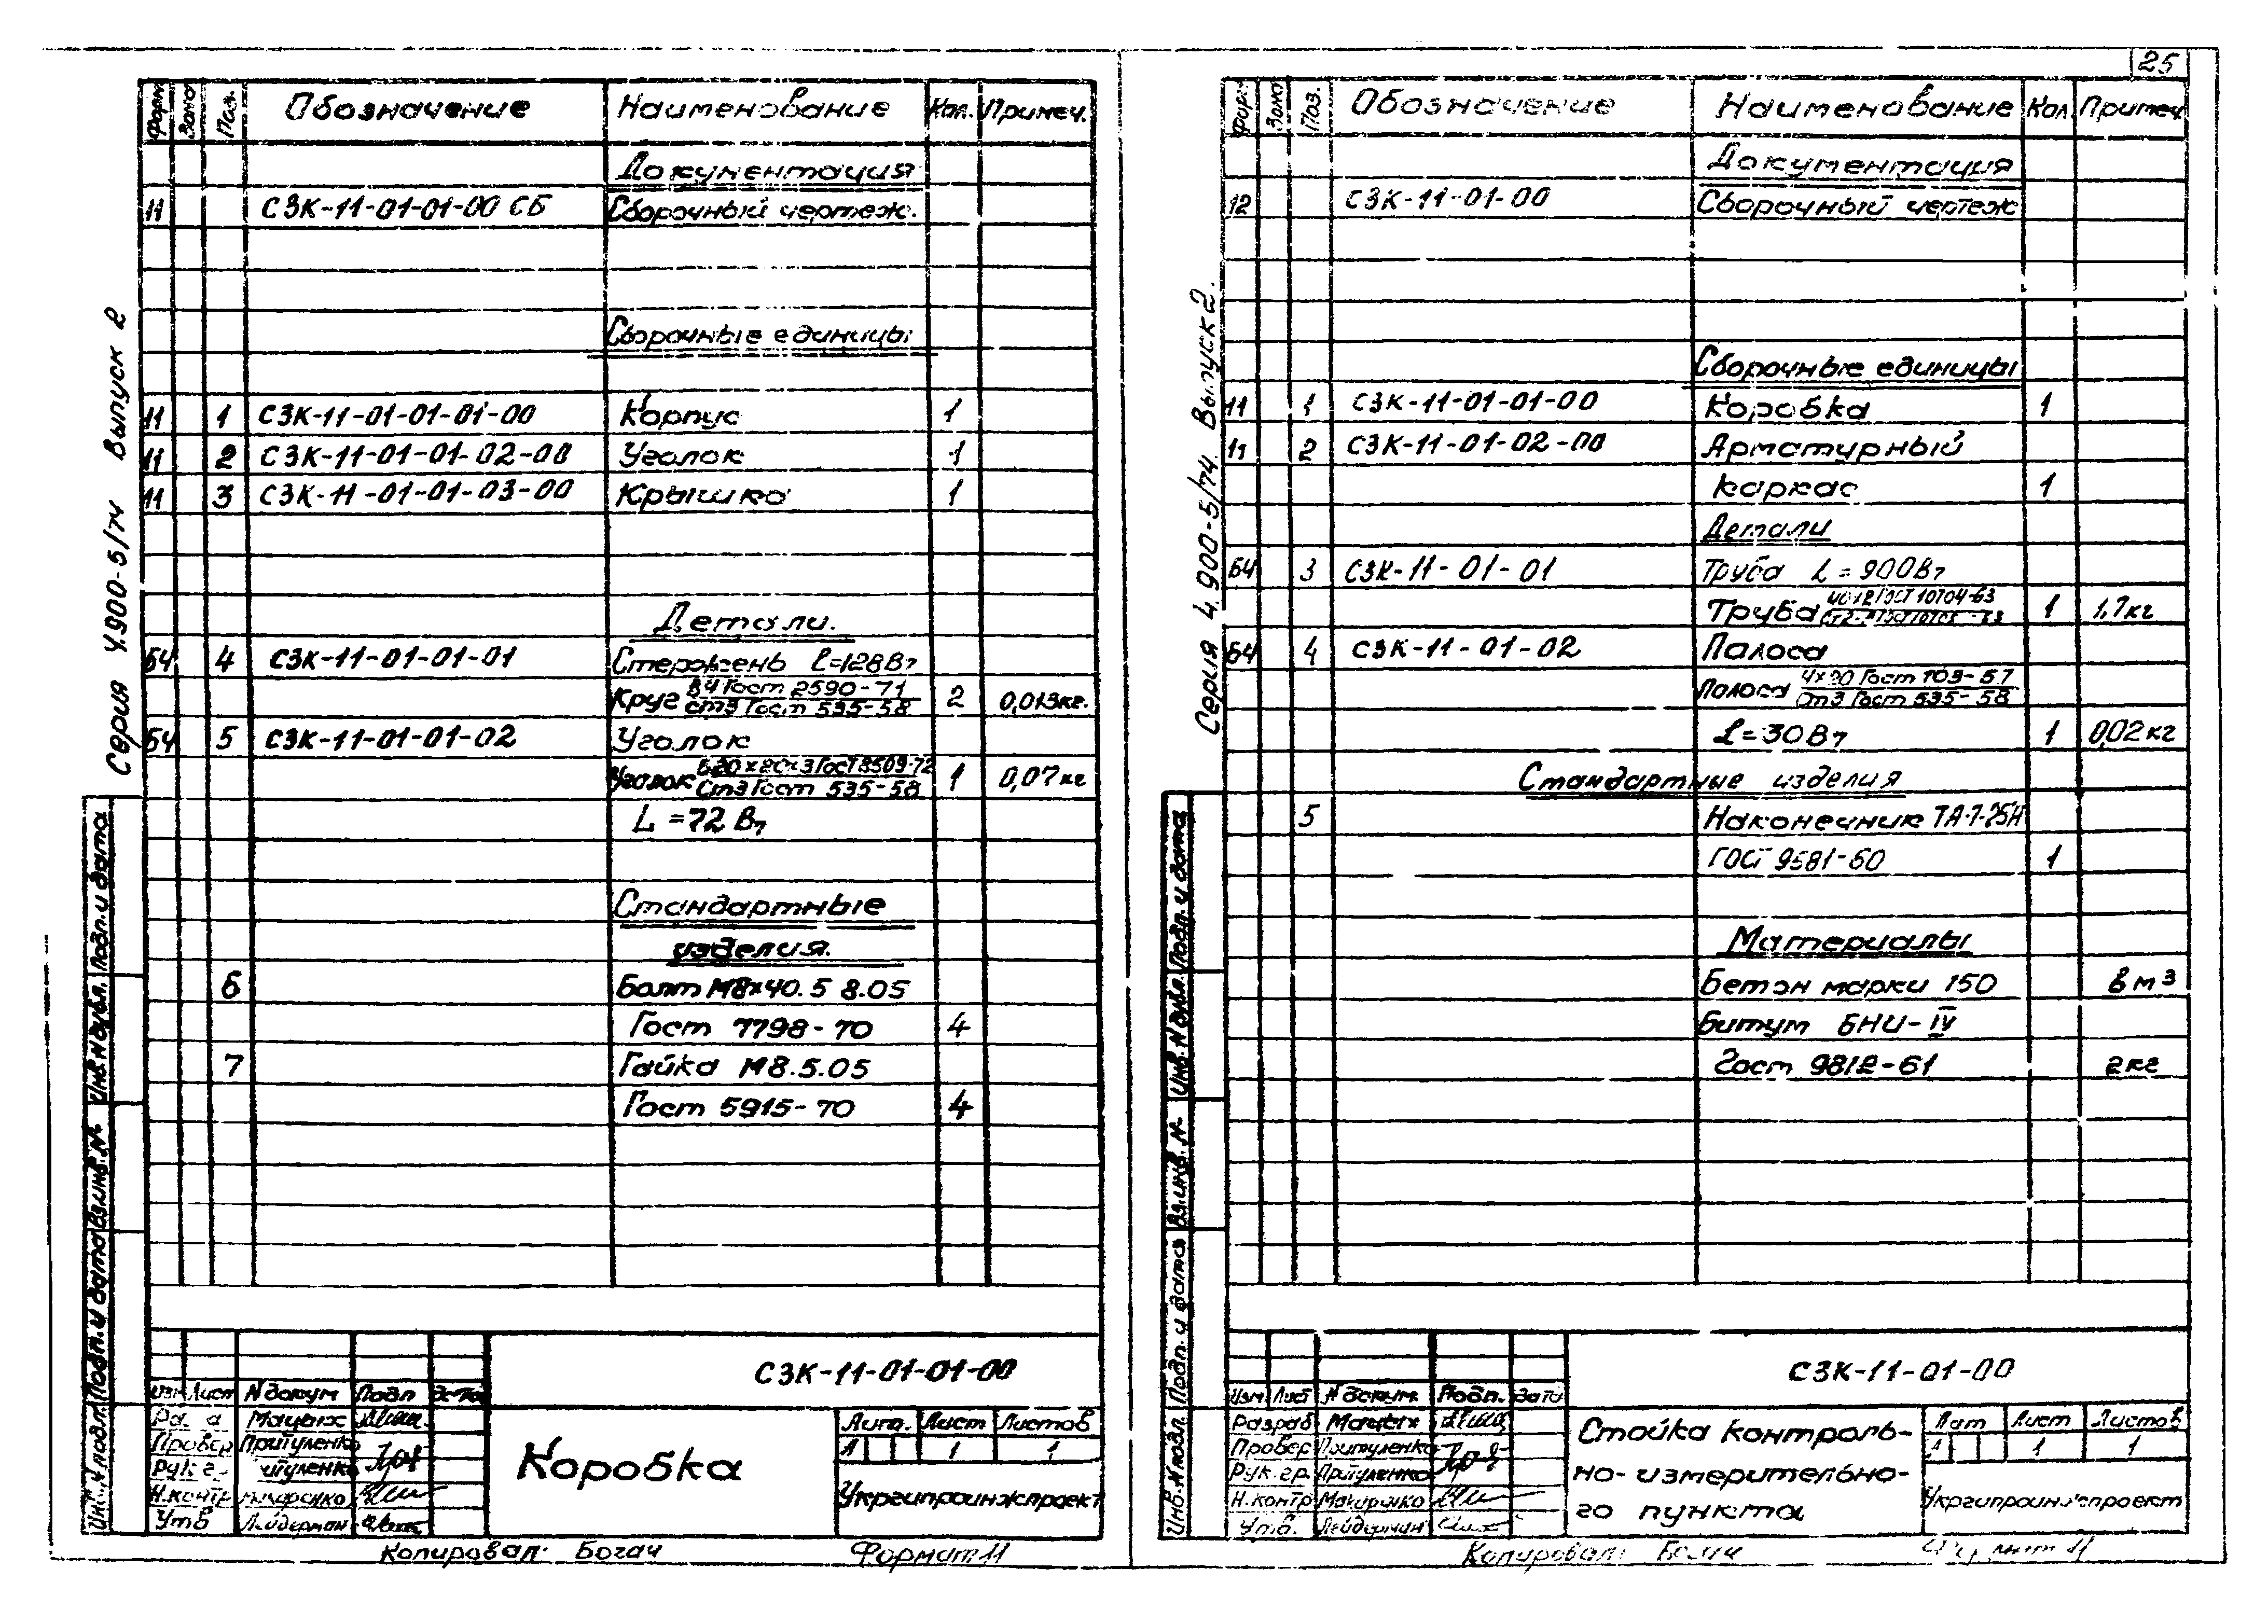 25
Серия 4.900-5/74 Выпуск 2
Форм Зона Поз. Обозначение Наименование Кол. Примеч.
Документация
11 СЗК-11-01-01-00 СБ Сборочный чертеж.
Сборочные единицы
11 1 СЗК-11-01-01-01-00 Корпус 1
11 2 СЗК-11-01-01-02-00 Уголок 1
11 3 СЗК-11-01-01-03-00 Крышка 1
Детали.
БЧ 4 СЗК-11-01-01-01 Стержень ℓ=128В7
Круг В4 Гост 2590-71 / Ст3 Гост 535-58 2 0,013кг.
БЧ 5 СЗК-11-01-01-02 Уголок
Уголок Б20х20х3 Гост 8509-72 / Ст3 Гост 535-58 1 0,07кг
L=72 В7
Стандартные
изделия.
6 Болт М8х40.5 8.05
Гост 7798-70 4
7 Гайка М8.5.05
Гост 5915-70 4
Инв.N подл. Подп. и дата Вз.инв.N Инв.N дубл. Подп. и дата
СЗК-11-01-01-00
Изм Лист N докум Подп Дата
Мацых
Провер Притуленко
Рук.г.
Н.контр Макаренко
Утв Лейдерман
Коробка
Лит. Лист Листов
Л 1 1
Укргипроинжпроект
Копировал: Богач Формат 11
Серия 4.900-5/74. Выпуск 2.
Форм Зона Поз. Обозначение Наименование Кол. Примеч.
Документация
12 СЗК-11-01-00 Сборочный чертеж
Сборочные единицы
11 1 СЗК-11-01-01-00 Коробка 1
11 2 СЗК-11-01-02-00 Арматурный
каркас 1
Детали
БЧ 3 СЗК-11-01-01 Труба L=900В7
Труба 40х2 ГОСТ 10704-63 1 1,7кг
БЧ 4 СЗК-11-01-02 Полоса
Полоса 4х20 Гост 103-57 / Ст3 Гост 535-58
L=30В7 1 0,02кг
Стандартные изделия
5 Наконечник ТА-7-25Н
ГОСТ 9581-60 1
Материалы
Бетон марки 150 в м3
Битум БНИ-IV
Гост 9812-61 2кг
Инв.N подл. Подп. и дата Вз.инв.N Инв.N дубл. Подп. и дата
СЗК-11-01-00
Изм Лист N докум. Подп. Дата
Разраб Мацых
Провер Притуленко
Рук.гр. Притуленко
Н.контр Макаренко
Утв. Лейдерман
Стойка контроль-
но-измерительно-
го пункта
Лит Лист Листов
Л 1 1
Укргипроинжпроект
Копировал: Богач Формат 11